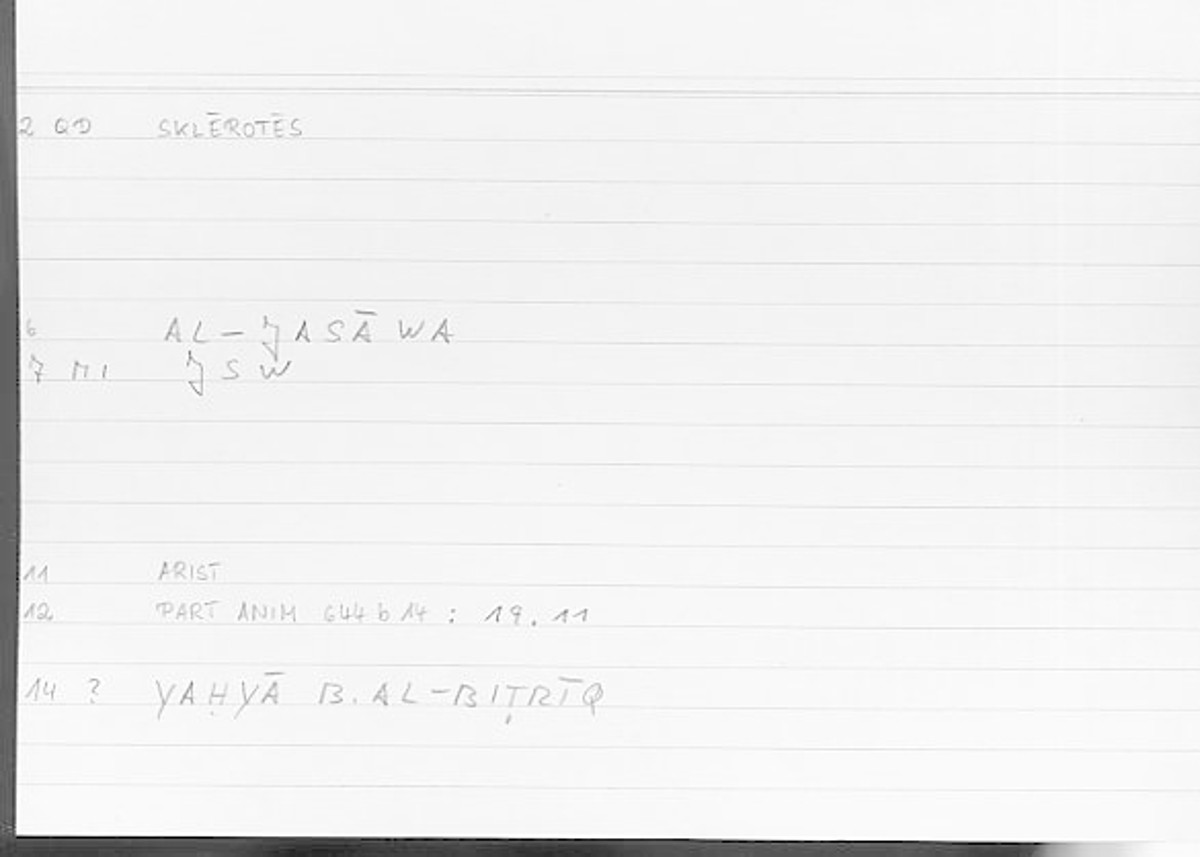 2 QD SKLĒROTĒS
6 AL-JASĀWA
7 MI JSW
11 ARIST
12 PART ANIM 644 b 14 : 19.11
14 ? YAḤYĀ B. AL-BIṬRĪQ